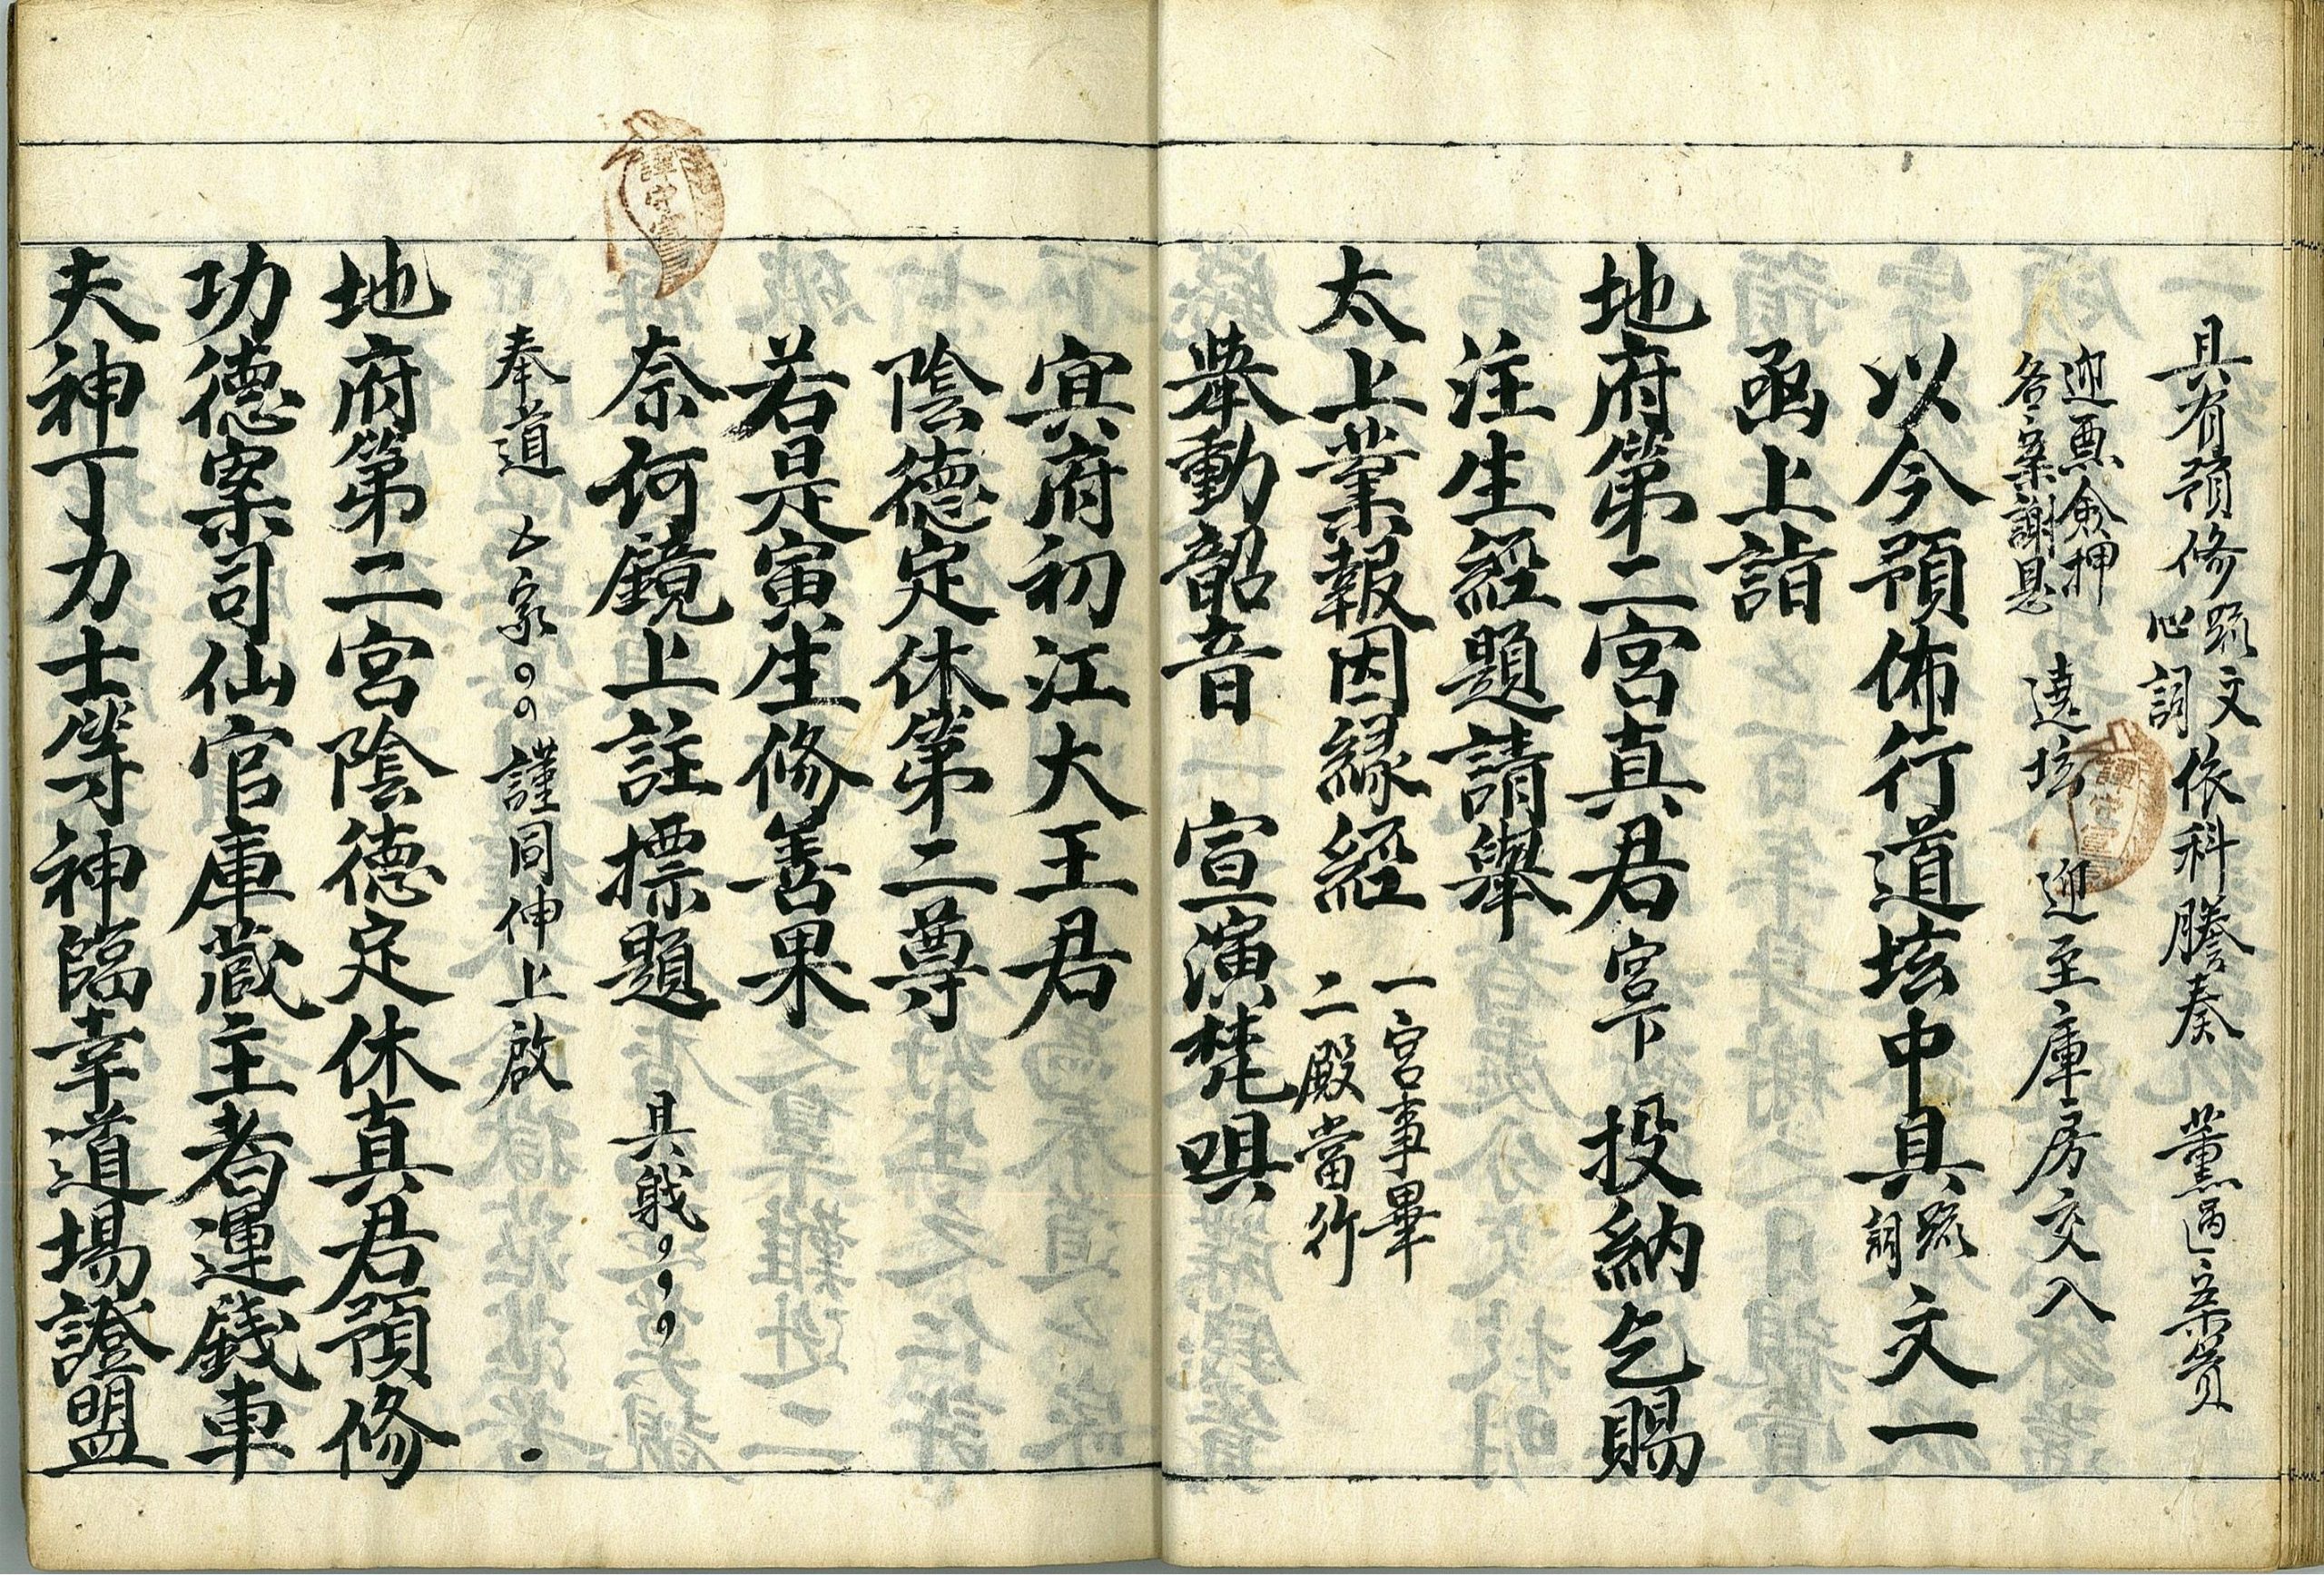 具有預修疏文依科謄奏
心詞
薰過
案賫
迎
僉押
各案謝恩
遶垓
迎至庫房交入
以今預佈行道垓中具疏詞文一
函上詣
地府第二宮真君宮下投納乞賜
注生經題請舉
太上業報因緣經
一宮事畢
二殿當行
舉動韶音 宣演梵唄
冥府初江大王君
陰德定休第二尊
若是寅生修善果
奈何鏡上註標題 具戝
奉道 家 謹同伸上啟
地府第二宮陰德定休真君預修
功德案司仙官庫藏主者運錢車
夫神丁力士等神臨幸道場證盟